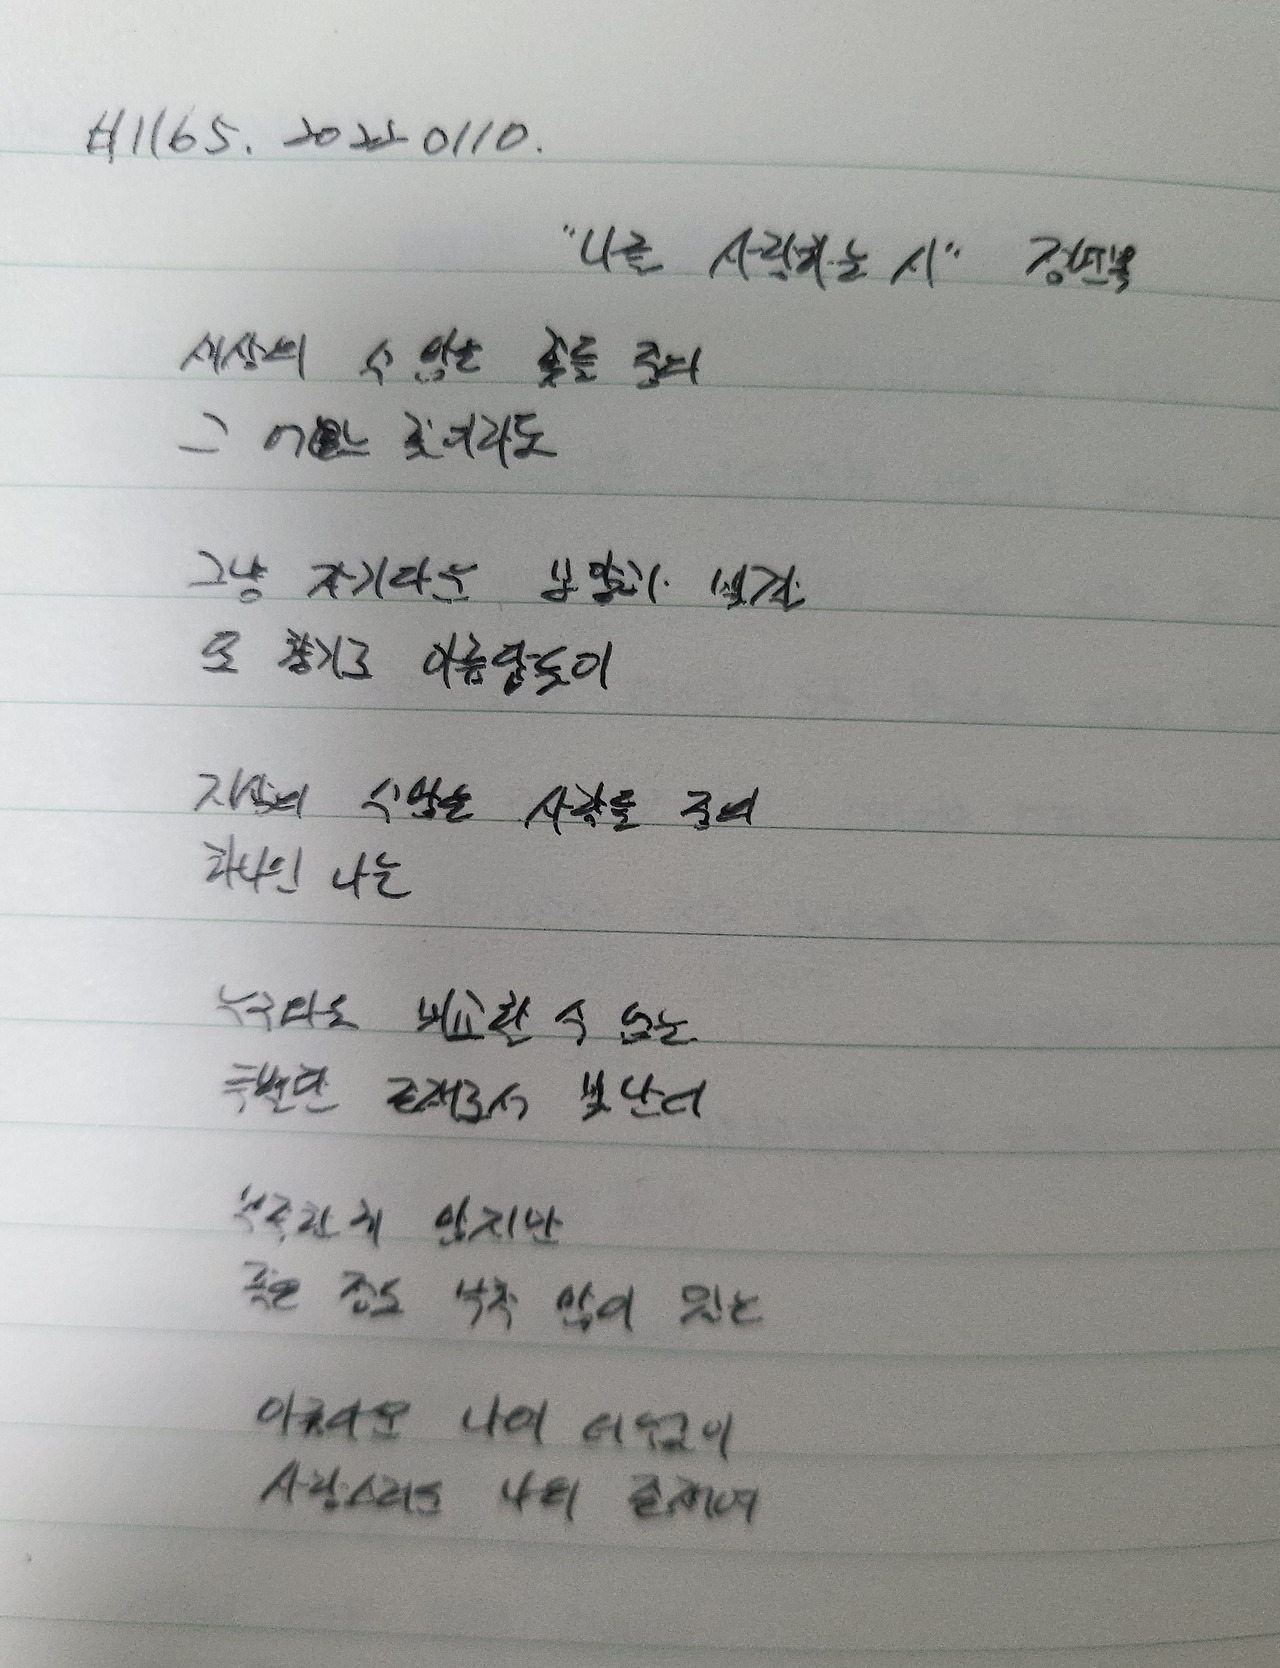 #1165. 20220110.
"나를 사랑하는 시" 정연복
세상의 수 많은 꽃들 중의
그 어떤 꽃이라도
그냥 자기다운 모양과 빛깔
또 향기로 아름답듯이
지상의 수많은 사람들 중의
하나인 나는
누구와도 비교할 수 없는
특별한 존재로서 빛난다
부족한 게 많지만
좋은 점도 무척 많이 있는
나여 더없이
사랑스러운 나의 존재여